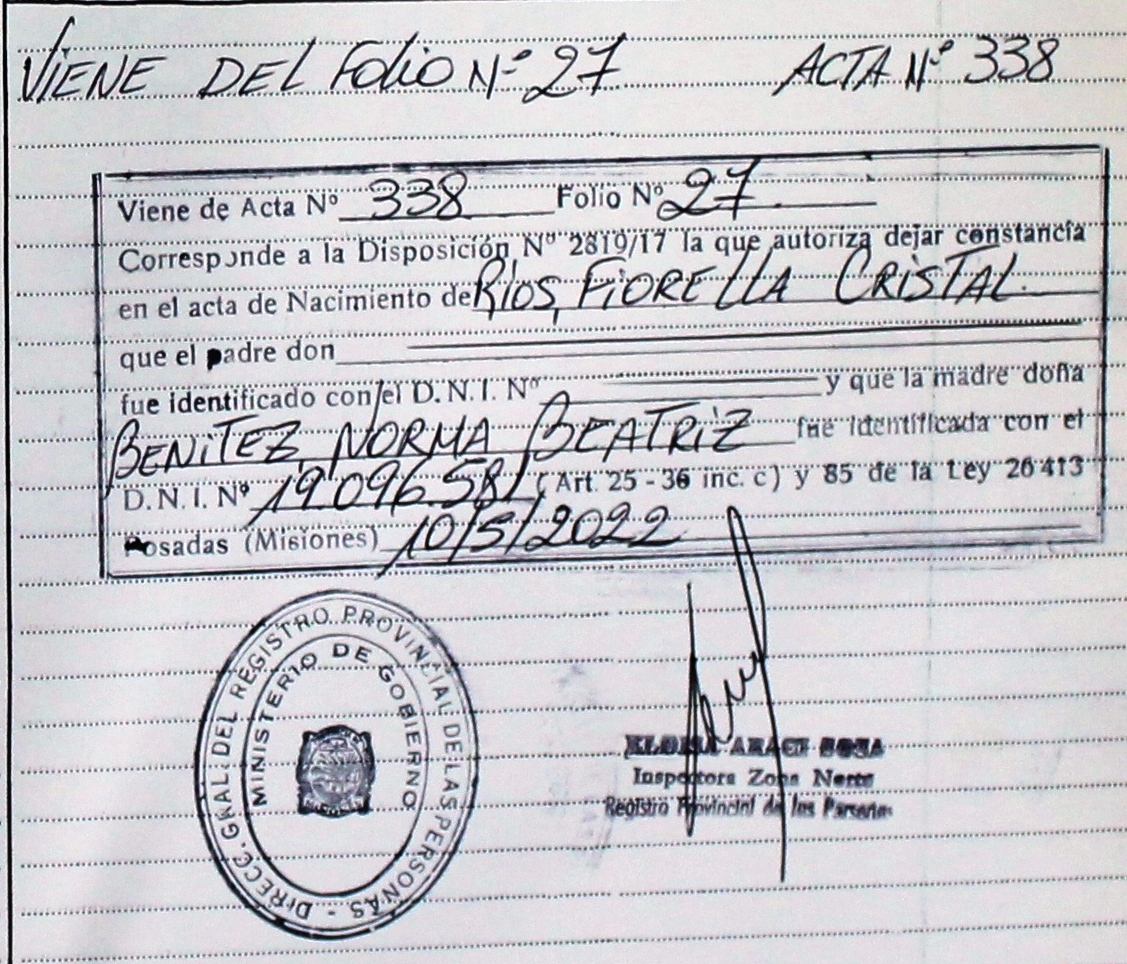 VIENE DEL Folio Nº 27 ACTA Nº 338
Viene de Acta Nº 338 Folio Nº 27
Corresponde a la Disposición Nº 2819/17 la que autoriza dejar constancia
en el acta de Nacimiento de RÍOS, FiORELLA CRiSTAL.
que el padre don
fue identificado con el D. N. I. Nº y que la madre doña
BENiTEZ, NORMA BEATRiZ fue identificada con el
D. N. I. Nº 19.096.581 (Art. 25 - 36 inc. c) y 85 de la Ley 26413
Posadas (Misiones) 10/5/2022
DIRECC. GRAL. DEL REGISTRO PROVINCIAL DE LAS PERSONAS -
MINISTERIO DE GOBIERNO
SOSA
Inspectora Zona Norte
Registro Provincial de las Personas